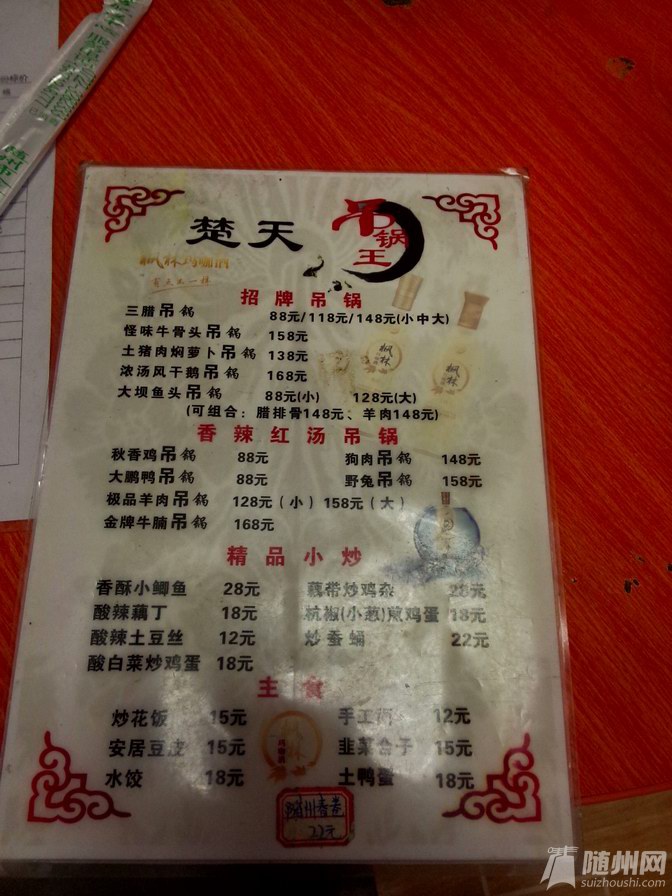 楚天
吊锅王
有天不一样
招牌吊锅
三腊吊锅 88元/118元/148元(小中大)
怪味牛骨头吊锅 158元
土猪肉焖萝卜吊锅 138元
浓汤风干鹅吊锅 168元
大坝鱼头吊锅 88元(小) 128元(大)
(可组合：腊排骨148元、羊肉148元)
香辣红汤吊锅
秋香鸡吊锅 88元 狗肉吊锅 148元
大鹏鸭吊锅 88元 野兔吊锅 158元
极品羊肉吊锅 128元（小）158元（大）
金牌牛腩吊锅 168元
精品小炒
香酥小鲫鱼 28元 藕带炒鸡杂 28元
酸辣藕丁 18元 杭椒(小葱)煎鸡蛋 18元
酸辣土豆丝 12元 炒蚕蛹 22元
酸白菜炒鸡蛋 18元
主食
炒花饭 15元 手工 12元
安居豆皮 15元 韭菜合子 15元
水饺 18元 土鸭蛋 18元
随州春卷
22元
随州网
suizhoushi.com